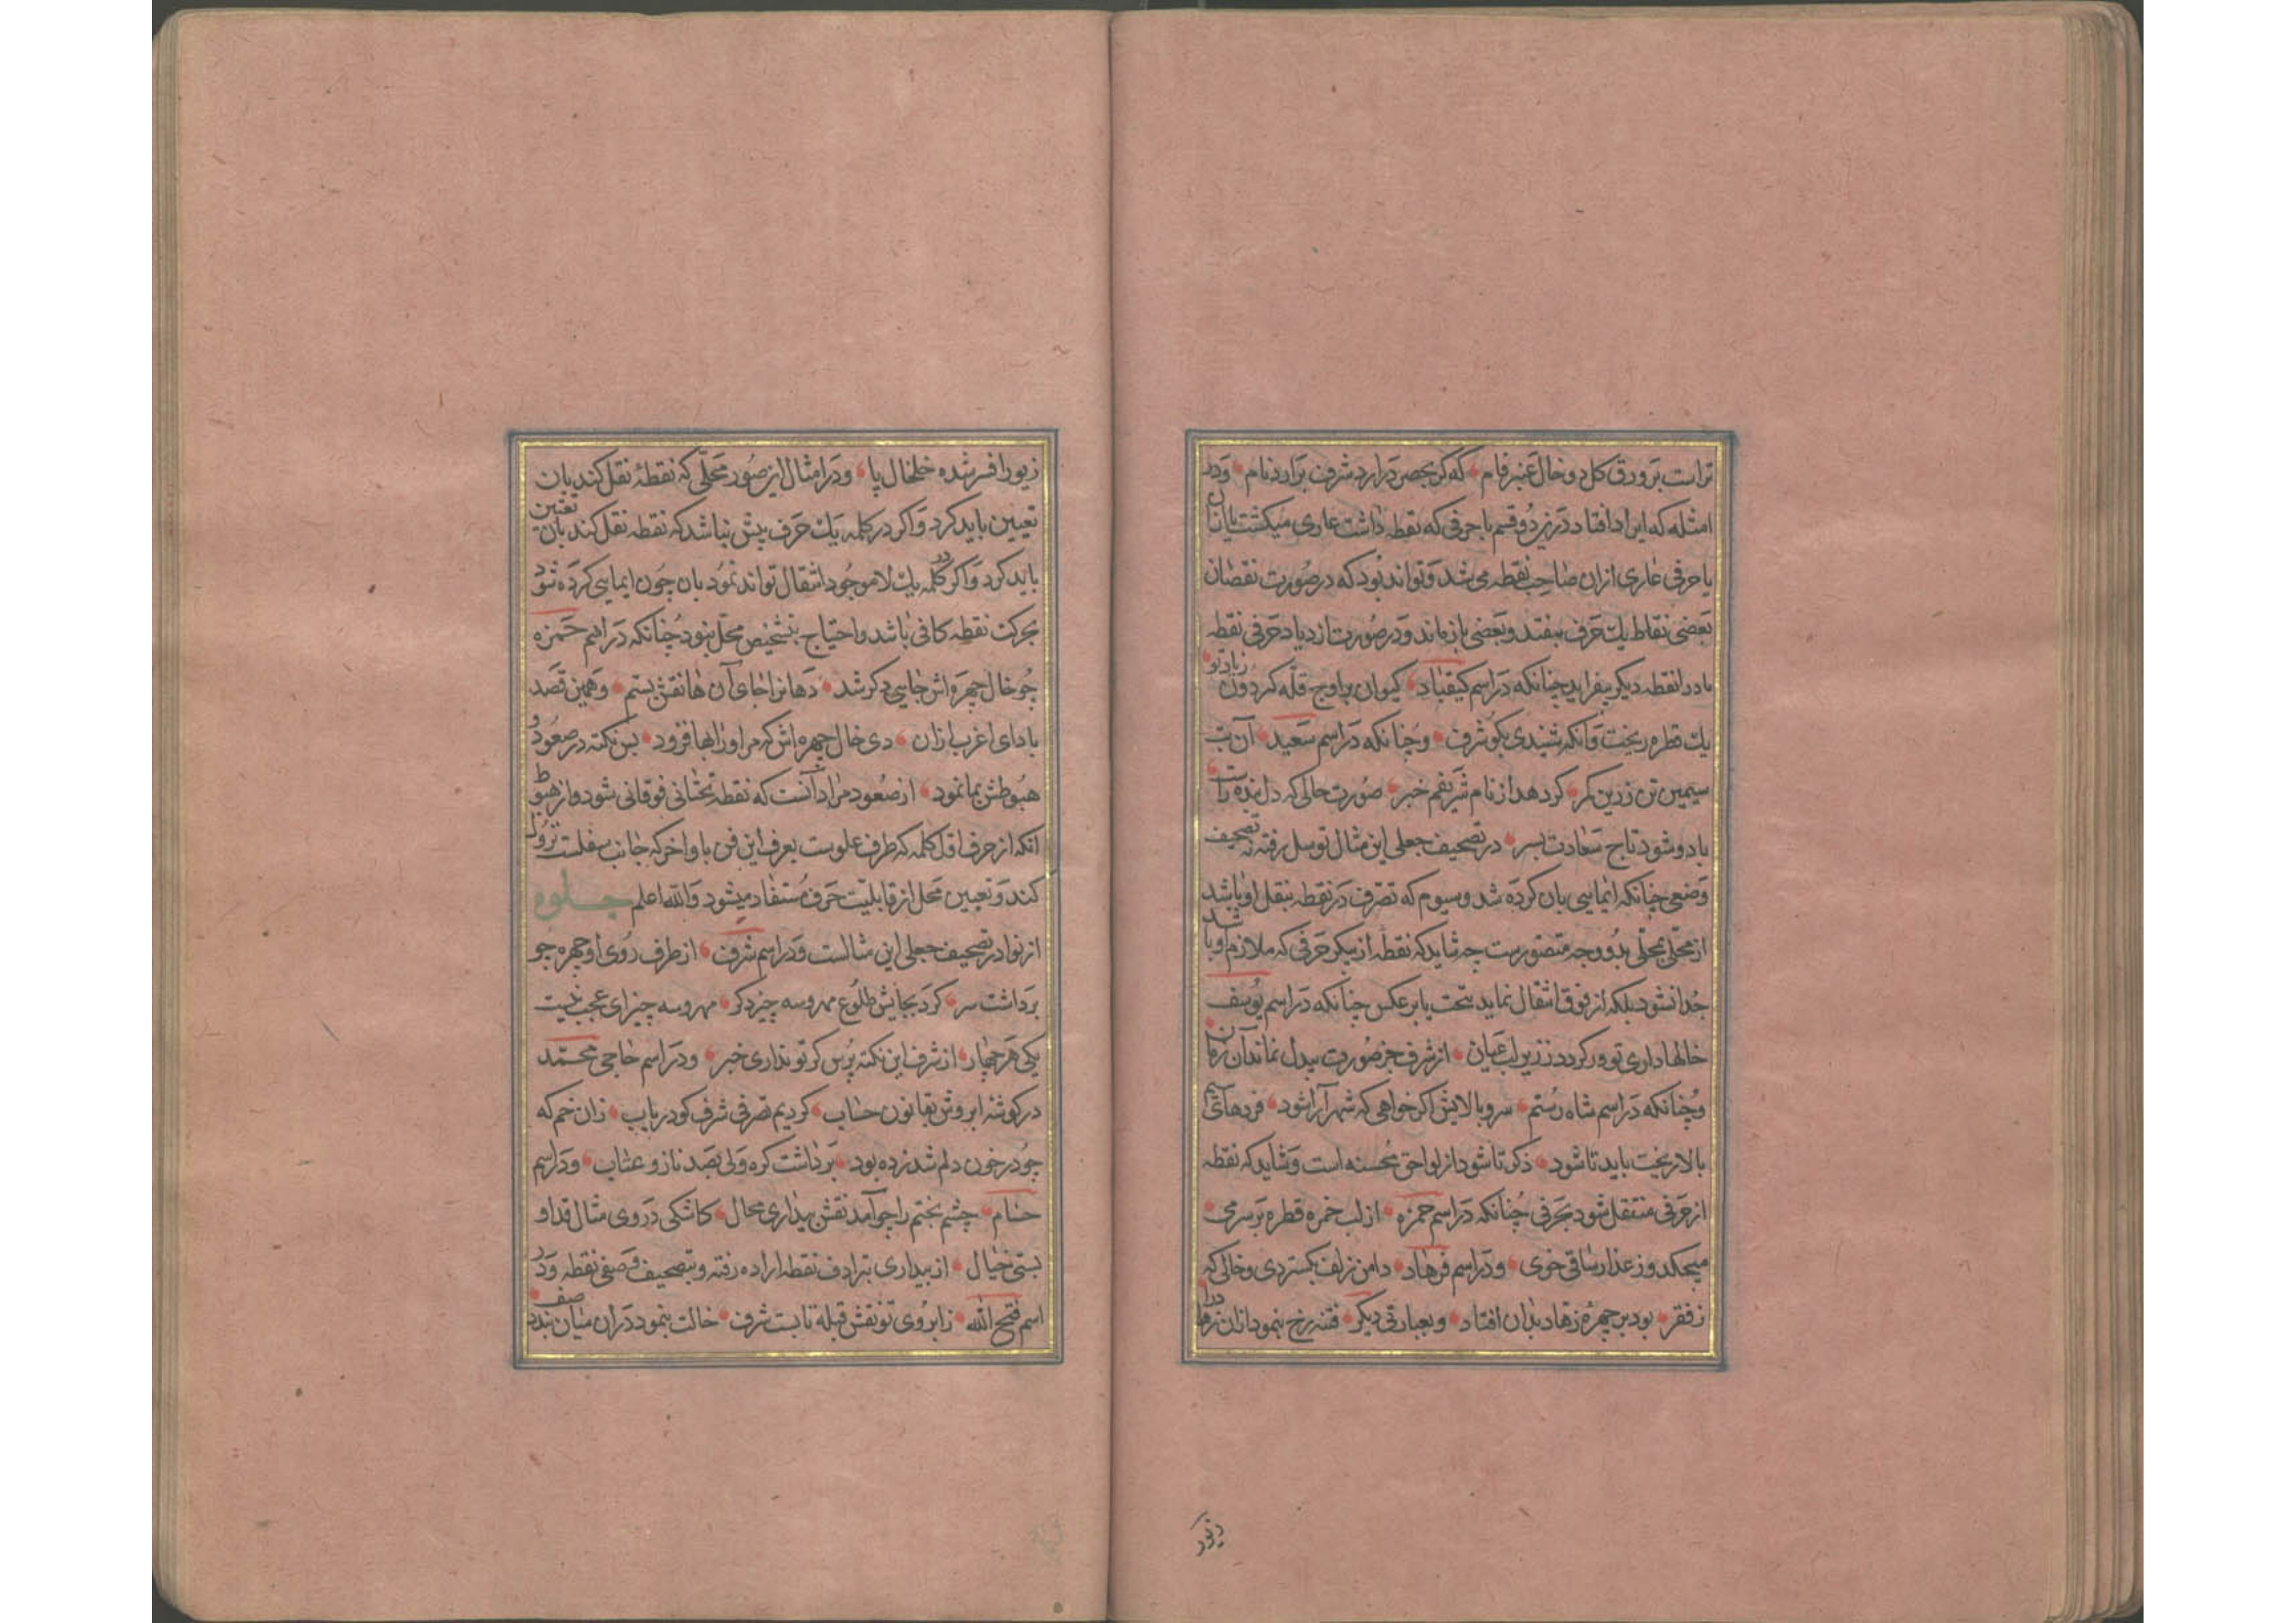 تراست بر ورق گل دو خال عنبر فام که گر بحصن درارد شرف برارد نام و در
امثله که ایراد افتاد درزین دو قسم با حرفی که نقطه داشت عاری میکشت یا ان
یا حرفی عاری ازان صاحب نقطه می شد و تواند بود که در صورت نقصان
بعضی نقاط یک حرف بیفتد و بعضی باز ماند و در صورت ازدیاد حرفی نقطه
دار را نقطه دیگر بیفزاید چنانکه در اسم کیقباد کیوان بر اوج قله گردون زیاد تو
یک قطره ریخت وانکه شنیدی بگو شرف و چنانکه در اسم سعید آن بت
سیمین تن زرین کمر گر دهد از نام شریفم خبر صورت حالی که دل بنده راست
باد و شود تاج سعادت بسر در تصحیف جعلی این مثال توسل رفته به تصحیف
وضعی چنانکه ایمایی بان کرده شد وسیوم که تصرف در نقطه بنقل او باشد
از محلی بمحلی بدو وجه متصورست چه شاید که نقطه از پیکر حرفی که ملازم او باشد
جدا نشود بلکه از فوق انتقال نماید بتحت یا بر عکس چنانکه در اسم یوسف
خالها داری تو ور گردد ز زیر لب عیان از شرف جز صورت بیدل نماند آن زمان
و چنانکه در اسم شاه رستم سرو بالایش اگر خواهی که شهر آرا شود
بالا ریخت باید تا شود ذکر تا شود از لواحق محسنه است و شاید که نقطه
از حرفی منتقل شود بحرفی چنانکه در اسم حمزه از لب خمره قطره بر سر می
میچکد وز عذار ساقی خوی و در اسم فرهاد دامن زلف بگستردی و خالی که
ز فقر بود بر چهره زهاد بدان افتاد و بعبارتی دیگر فتنه رخ بنمود ازان زهاد را
زیور
زیور افسر شده خلخال پا و در امثال این صور محلی که نقطهٔ نقل کند بان
تعیین باید کرد و اگر در کلمه یک حرف بیش نباشد که نقطه نقل کند بان تعیین
باید کرد و اگر در کلمه یک لا موجود انتقال تواند نمود بان چون ایمایی کرده شود
بحرکت نقطه کافی باشد و احتیاج بتشخیص محل نبود چنانکه در اسم حمزه
چو خال چهره اش جایی دگر شد دهانرا جای آن ها نقش بستم و همین قصد
بادای اغرب ازان دی خال چهره اش که مر او را بها فزود بس نکته در صعود و
هبوطش بما نمود از صعود مراد آنست که نقطه تحتانی فوقانی شود و از هبوط
آنکه از حرف اول کلمه که طرف علوست بعرف این فن باواخر که جانب سفلست نزول
کند و تعیین محل از قابلیت حرف مستفاد میشود والله اعلم جلوه
از نوادر تصحیف جعلی این مثالست و در اسم شرف از طرف روی او چهره چو
برداشت سر کرد بجایش طلوع مهر و سه چیز دگر مهر و سه چیز ای عجب نیست
یکی هر چهار از شرف این نکته پرس گر تو نداری خبر و در اسم حاجی محمد
در گوشه ابروش بقانون حساب کردیم تصرفی شرف گو دریاب زان خم که
چو در خون دلم شد زده بود برداشت گره ولی بصد ناز و عتاب و در اسم
حسام چشم بختم را چو آمد نقش بیداری محال کاشکی در وی مثال قد او
بستی خیال از بیداری بترادف نقطه اراده رفته و تصحیف وصفی نقطه و در
اسم فتح الله ز ابروی تو نقش قبله تا بست شرف خالت بنمود در ان میان بند صف